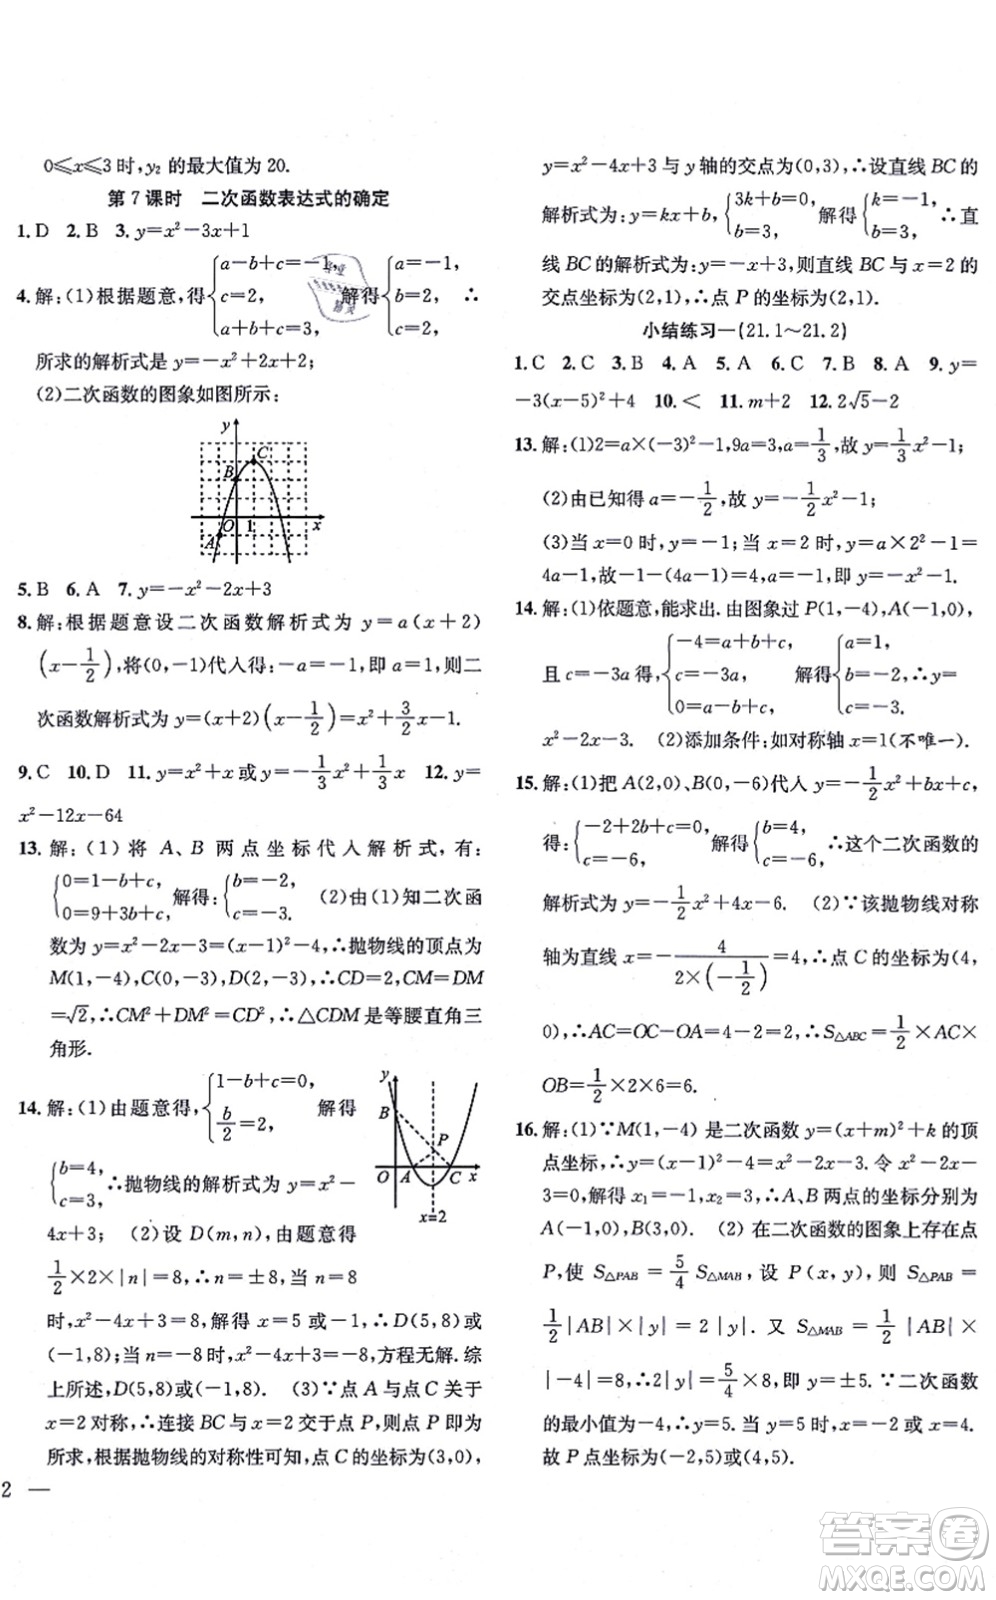 0≤x≤3时,y₂的最大值为20.
第7课时　二次函数表达式的确定
1. D　2. B　3. y=x²-3x+1
4. 解:(1)根据题意,得{a-b+c=-1, c=2, a+b+c=3, 解得{a=-1, b=2, c=2, ∴
所求的解析式是 y=-x²+2x+2;
(2)二次函数的图象如图所示:
y
C
B
O 1 x
A
5. B　6. A　7. y=-x²-2x+3
8. 解:根据题意设二次函数解析式为 y=a(x+2)
(x-1/2),将(0,-1)代入得:-a=-1,即 a=1,则二
次函数解析式为 y=(x+2)(x-1/2)=x²+3/2x-1.
9. C　10. D　11. y=x²+x或y=-1/3x²+1/3x　12. y=
x²-12x-64
13. 解:(1)将 A、B 两点坐标代入解析式,有:
{0=1-b+c, 0=9+3b+c, 解得:{b=-2, c=-3.　(2)由(1)知二次函
数为 y=x²-2x-3=(x-1)²-4,∴抛物线的顶点为
M(1,-4),C(0,-3),D(2,-3),∴CD=2,CM=DM
=√2,∴CM²+DM²=CD²,∴△CDM是等腰直角三
角形.
14. 解:(1)由题意得,{1-b+c=0, b/2=2, 解得
{b=4, c=3. ∴抛物线的解析式为 y=x²-
4x+3;　(2)设 D(m,n),由题意得
1/2×2×|n|=8,∴n=±8,当 n=8
y
B
P
O A C x
x=2
时,x²-4x+3=8,解得 x=5或-1,∴D(5,8)或
(-1,8);当 n=-8时,x²-4x+3=-8,方程无解.综
上所述,D(5,8)或(-1,8).　(3)∵点 A与点C关于
x=2对称,∴连接 BC与x=2交于点 P,则点 P即为
所求,根据抛物线的对称性可知,点C的坐标为(3,0),
2 —
y=x²-4x+3与y轴的交点为(0,3),∴设直线 BC的
解析式为:y=kx+b,{3k+b=0, b=3, 解得{k=-1, b=3. ∴直
线 BC的解析式为:y=-x+3,则直线BC与x=2的
交点坐标为(2,1),∴点 P的坐标为:(2,1).
小结练习一(21.1~21.2)
1. C　2. C　3. B　4. A　5. A　6. C　7. B　8. A　9. y=
-3(x-5)²+4　10. <　11. m+2　12. 2√5-2
13. 解:(1)2=a×(-3)²-1,9a=3,a=1/3,故 y=1/3x²-1;
(2)由已知得 a=-1/2,故 y=-1/2x²-1;
(3)当 x=0时,y=-1;当 x=2时,y=a×2²-1=
4a-1.∴-1=4a-1,解得 a=0,即 y=-1.
14. 解:(1)依题意,能求出.由图象过 P(1,-4),A(-1,0),
且c=-3a得,{-4=a+b+c, c=-3a, 0=a-b+c, 解得{a=1, b=-2, c=-3. ∴y=
x²-2x-3.　(2)添加条件:如对称轴 x=1(不唯一).
15. 解:(1)把 A(2,0)、B(0,-6)代入 y=-1/2x²+bx+c,
得:{-2+2b+c=0, c=-6, 解得{b=4, c=-6. ∴这个二次函数的
解析式为 y=-1/2x²+4x-6.　(2)∵该抛物线对称
轴为直线 x=-4/(2×(-1/2))=4,∴点 C的坐标为(4,
0),∴AC=OC-OA=4-2=2,∴S△ABC=1/2×AC×
OB=1/2×2×6=6.
16. 解:(1)∵M(1,-4)是二次函数 y=(x+m)²+k的顶
点坐标,∴y=(x-1)²-4=x²-2x-3.令 x²-2x-3
=0,解得 x₁=-1,x₂=3,∴A、B两点的坐标分别为
A(-1,0),B(3,0).　(2)在二次函数的图象上存在点
P,使 S△PAB=5/4S△MAB,设 P(x,y),则 S△PAB=
1/2|AB|×|y|=2|y|.又 S△MAB=1/2|AB|×
|-4|=8,∴2|y|=5/4×8,即 y=±5.∵二次函数
的最小值为-4,∴y=5.当 y=5时,x=-2或x=4.
故 P点坐标为(-2,5)或(4,5).
答案卷
MXQE.COM